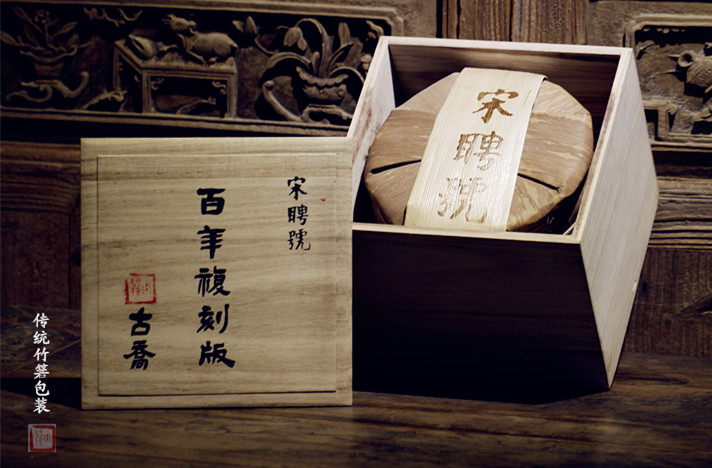 宋聘號
宋聘號
百年複刻版
古喬
传统竹箬包装